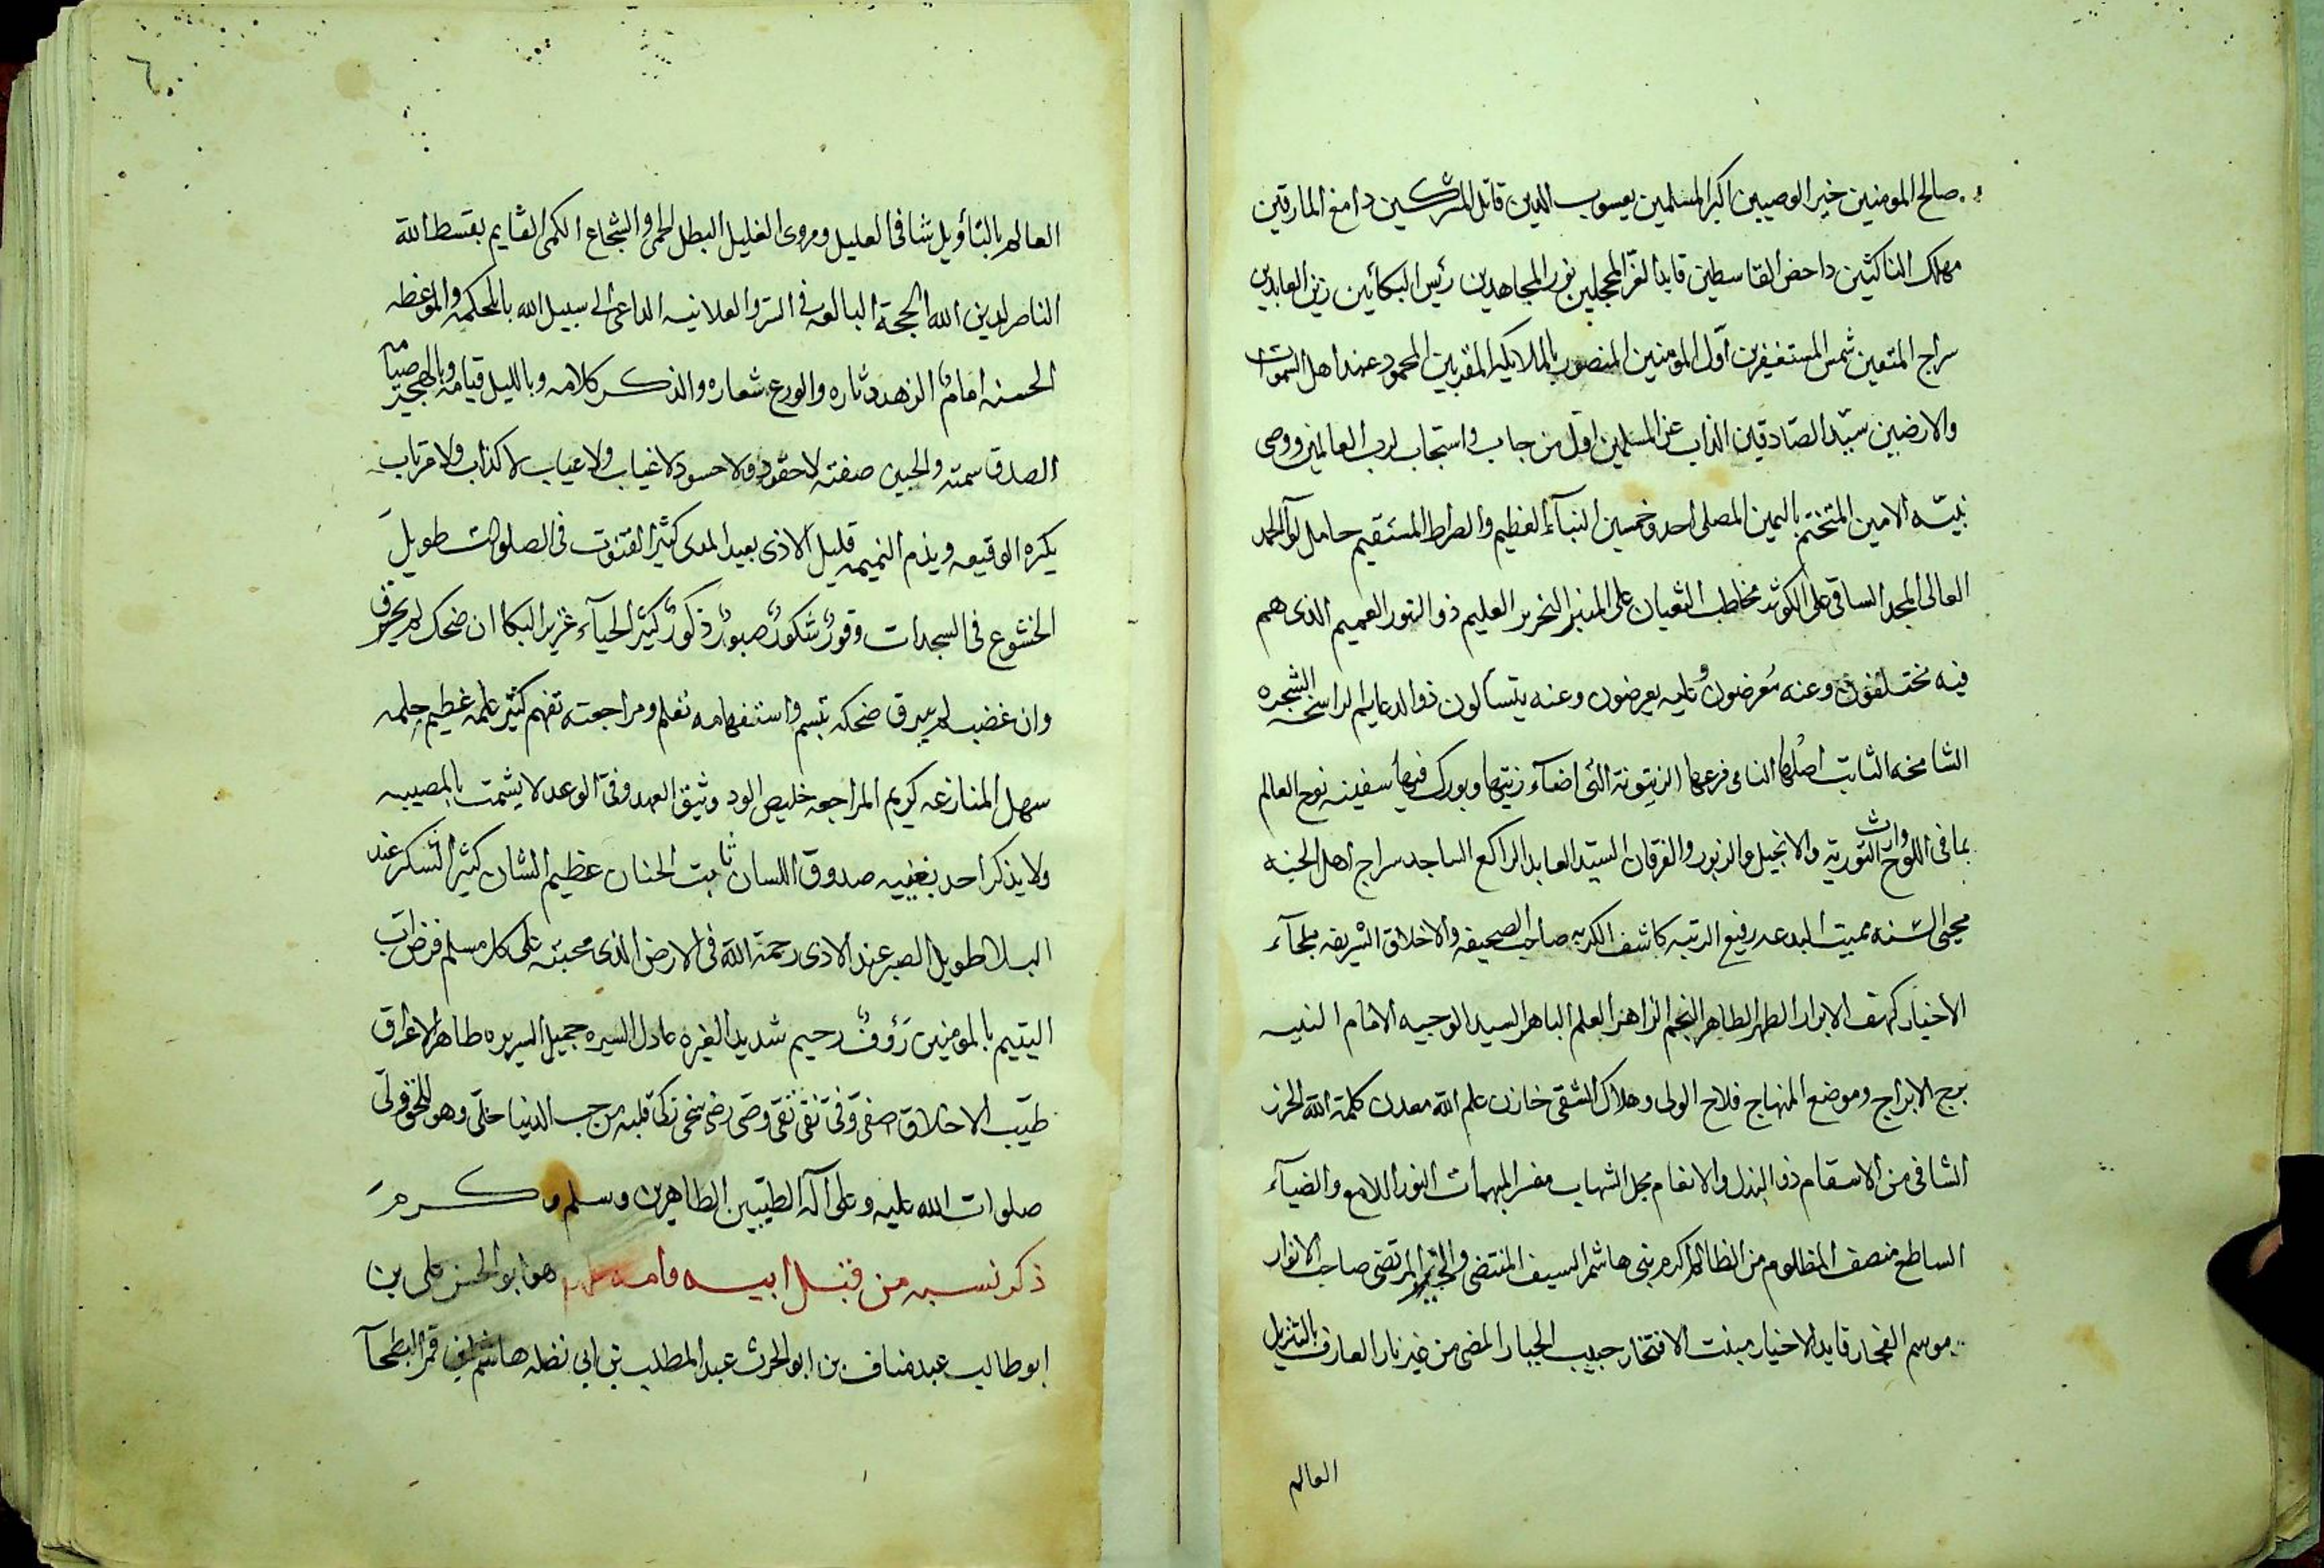 صالح المومنين خير الوصيين اكبر المسلمين يعسوب الدين قاتل المشركين دامغ المارقين
مهلك الناكثين داحض القاسطين قايد الغرّ المحجلين نور المجاهدين رئيس البكائين زين العابدين
سراج المتقين شمس المستغفرين اوّل المومنين المنصور بالملايكه المقربين المحمود عند اهل السموات
والارضين سيّد الصّادقين الذاب عن المسلمين اول من جاب واستجاب لرب العالمين ووصى
نبيّه الامين المتختم باليمين المصلى احد وخمسين النبآء العظيم والصراط المستقيم حامل لوآ الحمد
العالى المجد الساقى على الكوثر مخاطب الثعبان على المنبر النحرير العليم ذو النور العميم الذى هم
فيه مختلفون وعنه مُعرضون وعليه يعرضون وعنه يتسآلون ذو الدعايم الراسخه الشجره
الشامخه الثابت اصُلها النامى فرعها الزيتونة التى اضآء زيتها وبورك فيها سفينه نوح العالم
بما فى اللوح وارث التورية والانجيل والزبور والفرقان السيّد العابد الراكع الساجد سراج اهل الجنه
محيى السّنه مميت البدعه رفيع الرتبه كاشف الكربه صاحب الصحيفه والاخلاق الشريفه ملجآء
الاخيار كهف الابرار الطهر الطاهر النجم الزاهر العلم الباهر السيد الوجيه الامام النبيه
برج الابراج وموضع المنهاج فلاح الولى وهلاك الشقى خازن علم الله معدن كلمة الله الحرز
الشافى من الاسقام ذو البذل والانعام مجل الشهاب مفسر المبهمات النور اللامع والضيآء
الساطع منصف المظلوم من الظالم اكرم بنى هاشم السيف المنتضى والخير المرتضى صاحب الانوار
موسم الفخار قايد الاخيار منبت الافتخار حبيب الجبار المضى من غير نار العارف بالتنزيل
العالم
٦
العالم بالتأويل شافى العليل ومروى الغليل البطل المحى والشجاع الكمى القايم بقسط الله
الناصر لدين الله الحجة البالغه فى السّر والعلانيه الداعى الى سبيل الله بالحكمه والموعظه
الحسنه امامٌ الزهد دثاره والورع شعاره والذكر كلامه وبالليل قيامه وبالهجير صيامه
الصدق سمته والجبين صفته لا حقود ولا حسود لا غياب ولا عياب لا كذاب ولا مرتاب
يكره الوقيعه ويذم النميمه قليل الاذى بعيد المدى كثير القنوت فى الصلوات طويل
الخشوع فى السجدات وقورٌ شكورٌ صبورٌ ذكورٌ كثير الحيآء غزير البكا ان ضحك لم يخرق
وان غضب لم يبرق ضحكه تبسم واستفهامه تعلم ومراجعته تفهم كثير علمه عظيم حلمه
سهل المنازعه كريم المراجعه خليص الود وثيق العهد وفىّ الوعد لا يشمت بالمصيبه
ولا يذكر احد بغيبه صدوق اللسان ثابت الجنان عظيم الشان كثير الشكر عند
البلا طويل الصبر عند الاذى رحمة الله فى الارض الذى محبته على كل مسلم فرض اب
اليتيم بالمومنين رَؤفٌ رحيم شديد الغيره عادل السيره جميل السريره طاهر الاعراق
طيّب الاخلاق صفىّ وفىّ نقىّ تقىّ وصّى رضى سخى زكى قلبه من حب الدنيا خلّى وهو للحق ولىّ
صلوات الله عليه وعلى آله الطيّبين الطاهرين وسلم وكرمَ
ذكر نسبه من قبل ابيه وامه هو ابو الحسن على بن
ابو طالب عبد مناف بن ابو الحرث عبد المطلب بن ابى نضله هاشم قمر البطحآ